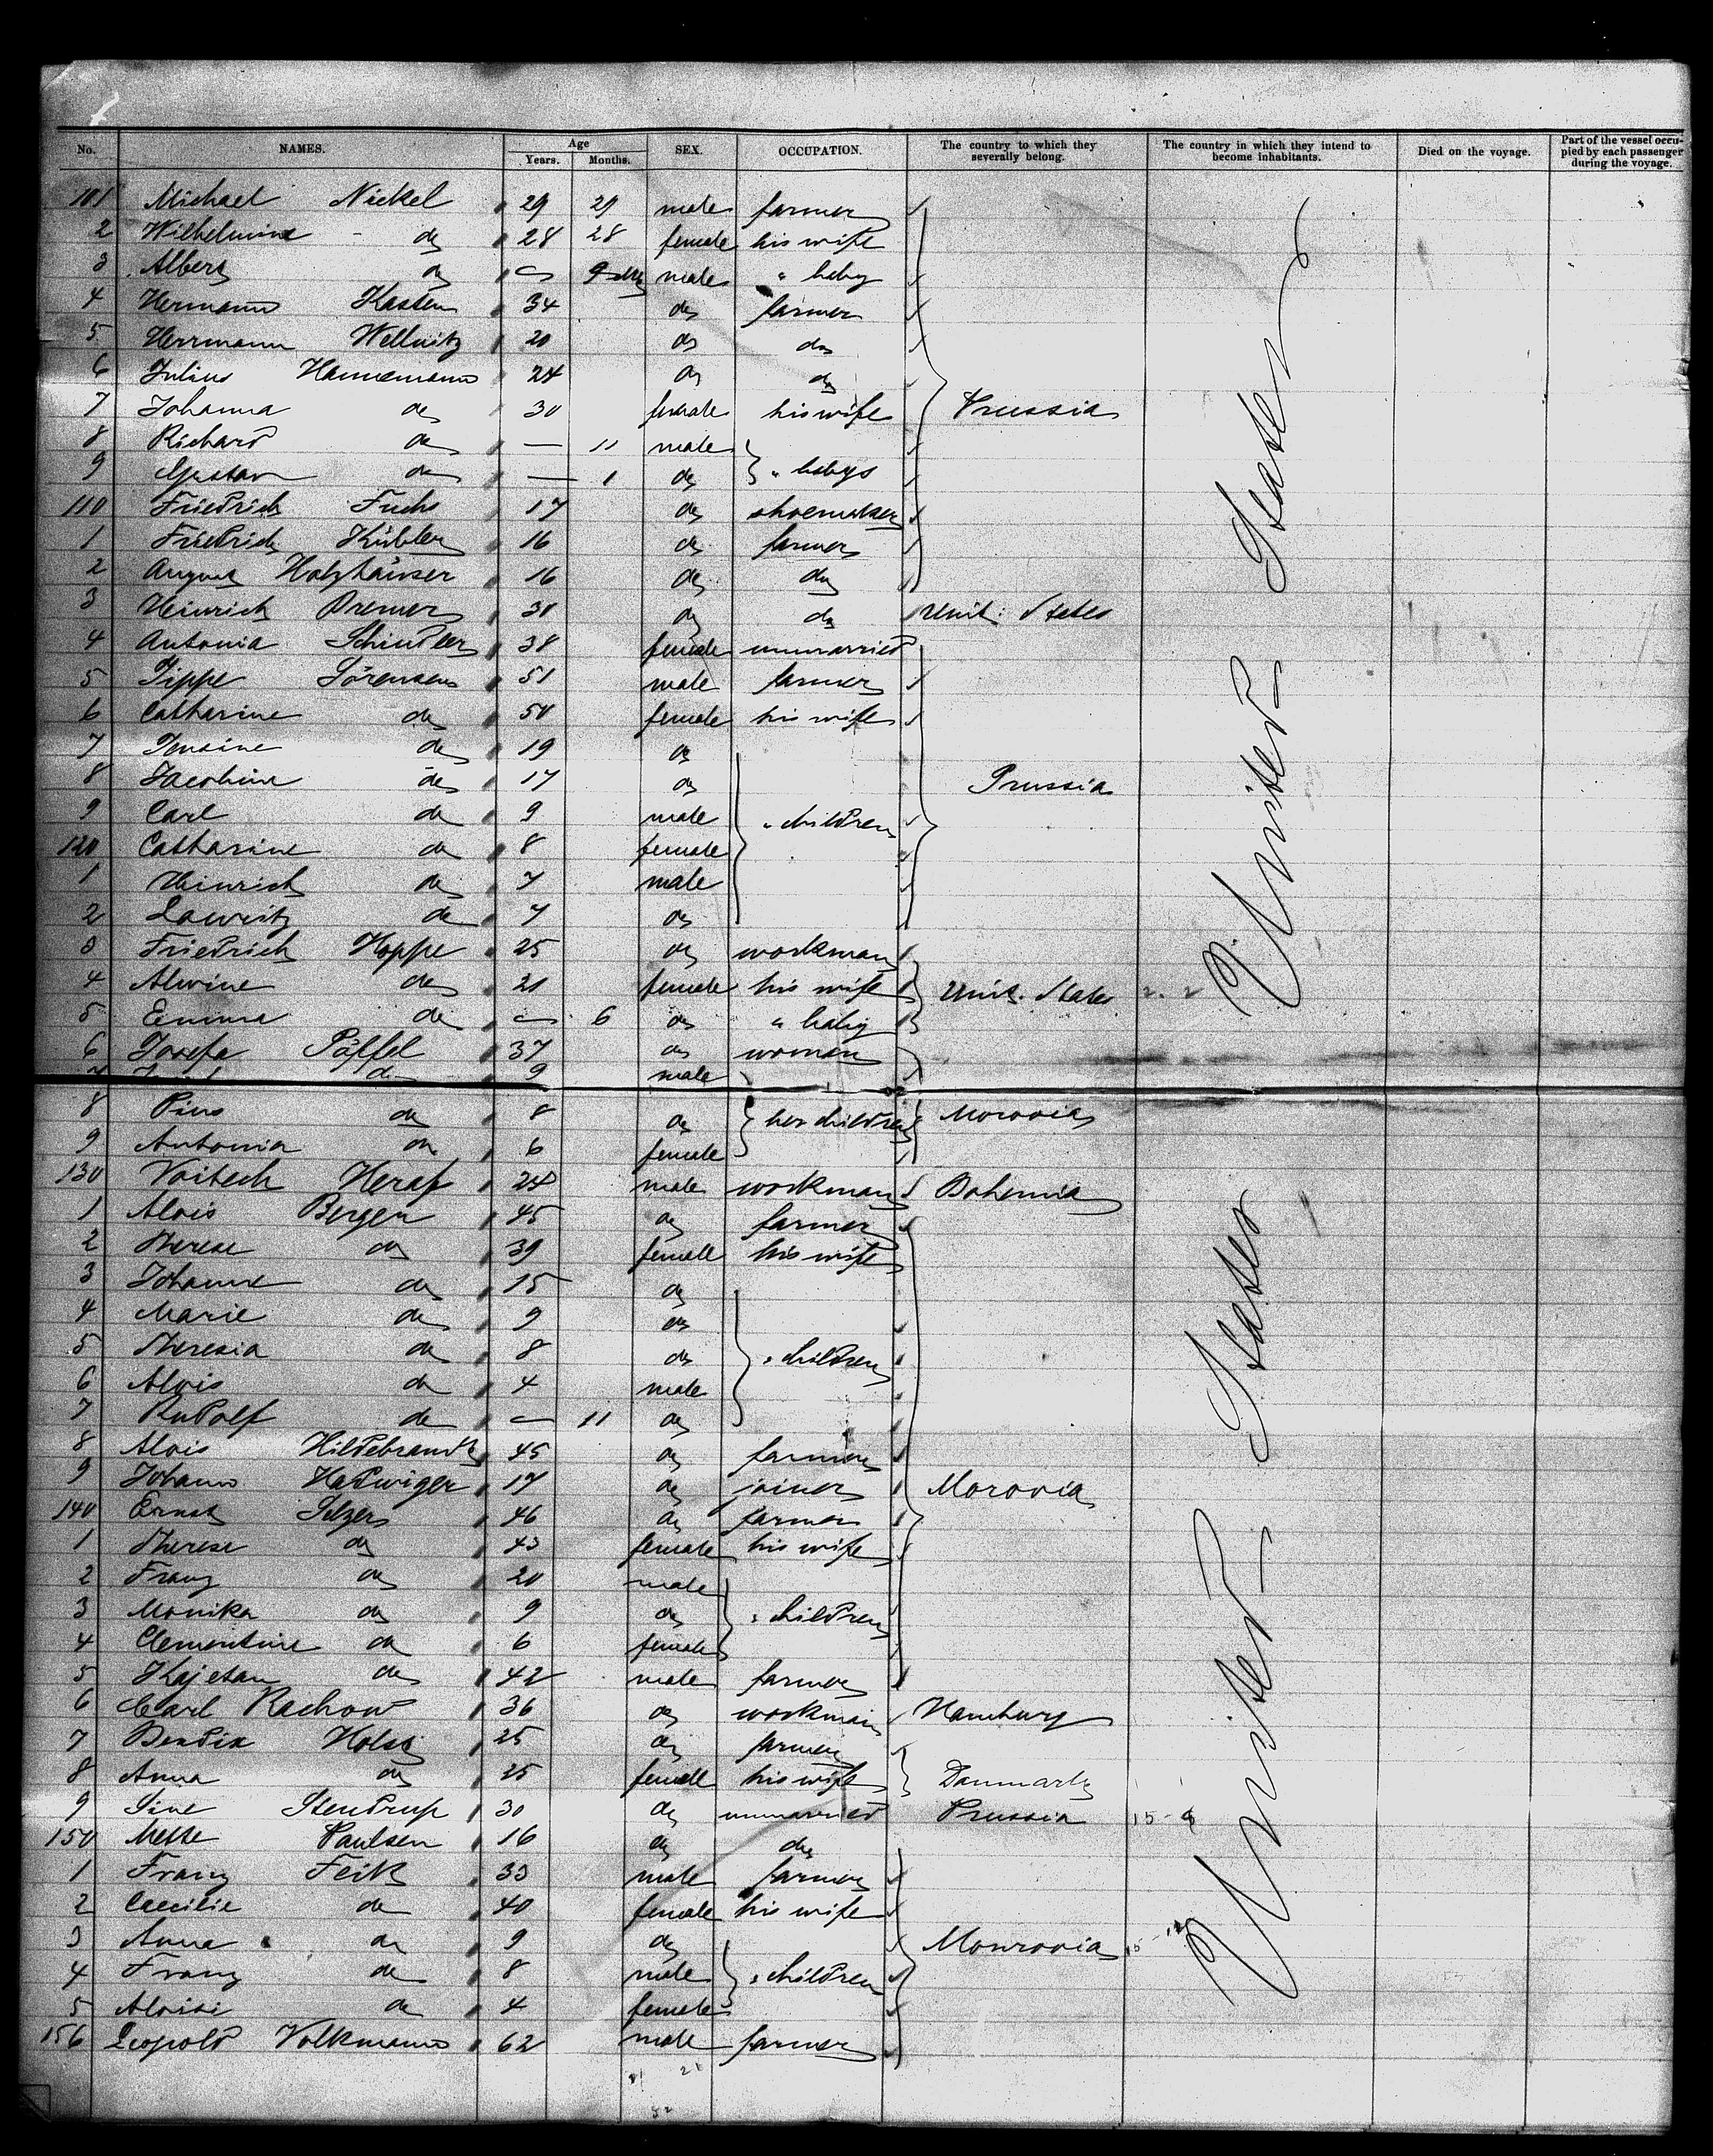 No. NAMES. Age Years. Months. SEX. OCCUPATION. The country to which they severally belong. The country in which they intend to become inhabitants. Died on the voyage. Part of the vessel occupied by each passenger during the voyage.
101 Michael Nickel 29 29 male farmer
2 Wilhelmine do 28 28 female his wife
3 Albert do — 9 male " baby
4 Hermann Kasten 34 do farmer
5 Herrmann Wellnitz 20 do do
6 Julius Hannemann 24 do do
7 Johanna do 30 female his wife Prussia
8 Richard do — 11 male
9 Gustav do — 1 do " babys
110 Friedrich Fuchs 17 do shoemaker
1 Friedrich Kübler 16 do farmer
2 August Holzhäuser 16 do do
3 Heinrich Bremer 30 do do Unit: States
4 Antonia Schindler 38 female unmarried
5 Jippe Sörensen 51 male farmer
6 Catharine do 50 female his wife
7 Jensine do 19 do
8 Jacobine do 17 do Prussia
9 Carl do 9 male " children
120 Catharine do 8 female
1 Heinrich do 7 male
2 Lawritz do 7 do
3 Friedrich Hoppe 25 do workman
4 Alwine do 21 female his wife Unit. States
5 Emma do — 6 do " baby
6 Josefa Päffel 37 do woman
7 do 9 male
8 Pius do 8 do her children Morovia
9 Antonia do 6 female
130 Voitech Heraf 24 male workman Bohemia
1 Alois Berger 45 do farmer
2 Therese do 39 female his wife
3 Johanne do 15 do
4 Marie do 9 do
5 Theresia do 8 do " children
6 Alois do 4 male
7 Rudolf do — 11 do
8 Alois Hildebrandt 45 do farmer
9 Johann Hadwiger 17 do joiner Morovia
140 Ernst Selzer 46 do farmer
1 Therese do 43 female his wife
2 Franz do 20 male
3 Monika do 9 do " children
4 Clementine do 6 female
5 Kajetan do 42 male farmer
6 Carl Rachow 36 do workman Hamburg
7 Bendix Holst 25 do farmer
8 Anna do 25 female his wife Danmark
9 Sine Stendrup 30 do unmarried Prussia
150 Mette Paulsen 16 do do
1 Franz Feik 33 male farmer
2 Caecilie do 40 female his wife
3 Anna do 9 do Monrovia
4 Franz do 8 male " children
5 Aloisi do 4 female
156 Leopold Volkmann 62 male farmer
United States
United States